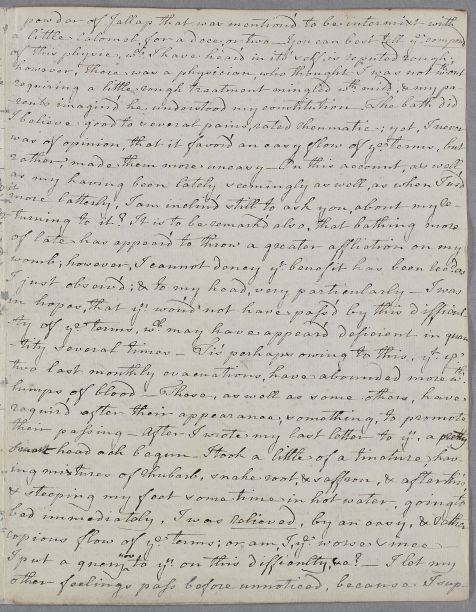 powdar of Jallap that was mention'd to be intermixt with
a little calomel, for a doce, or two — you can best tell yᵉ compos
of this physic, wᶜ I have heard in itsself, is reputed rough;
however, there was a physician, who thought I was not wᵗout
requiring a little rough treatment mingled wᵗʰ mild, & my pa-
rents imagin'd he understood my constitution — The bath did
I believe good to several pains, rated rheumatic; yet, I never
was of opinion, that it favor'd an easy flow of yᵉ terms, but
rather; made them more uneasy — On this account, as well
as my having been lately seemingly as well, as when I us'd
it more latterly, I am inclin'd still to ask you, about my re-
turning to it? It is to be remark'd also, that bathing more
of late has appear'd to throw a greater affliction on my
womb; however, I cannot deney yᵉ benefit has been to
I just observ'd; & to my head, very particularly — I was
in hopes, that yᵘ wou'd not have pass'd by this difficul-
ty of yᵉ terms, wᶜ may have appear'd deficient in quan
tity several times — Tis perhaps owing to this, yᵗ yᵉ
two last monthly evacuations, have abounded more wᵗʰ
lumps of blood — Those, as well as some others, have
requir'd after their appearance, something, to promote
their passing — After I wrote my last letter to yᵘ, a pretty
smart head ach begun I took a little of a tincture hav-
ing mixtures of rhubarb, snake root, & saffron, & after this,
& steeping my feet some time in hot water, going to
bed immediately, I was relieved, by an easy, & rather
copious flow of yᵉ terms; or, am I, yᵉ worse since
I put a query to yᵘ on this difficulty &c? — I let my
other feelings pass before unnoticed, because I sup-